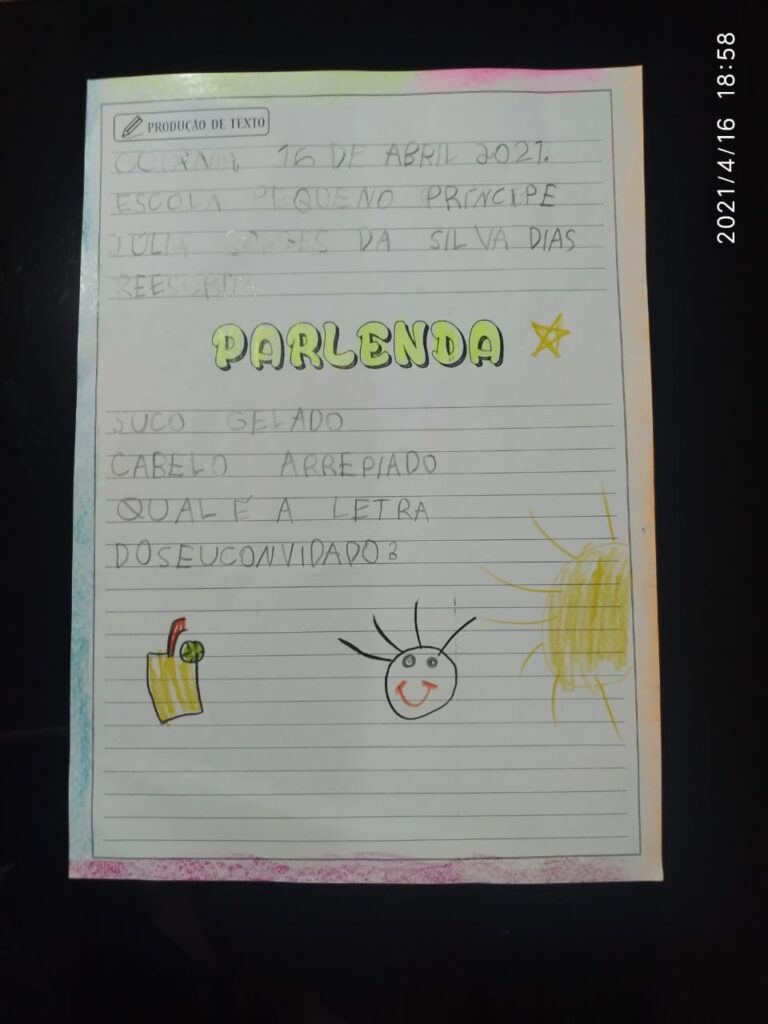 PRODUÇÃO DE TEXTO
GOIANA 16 DE ABRIL 2021.
ESCOLA PEQUENO PRÍNCIPE
JULIA DA SILVA DIAS
REESCRITA
PARLENDA
SUCO GELADO
CABELO ARREPIADO
QUAL É A LETRA
DOSEUCONVIDADO?
2021/4/16 18:58